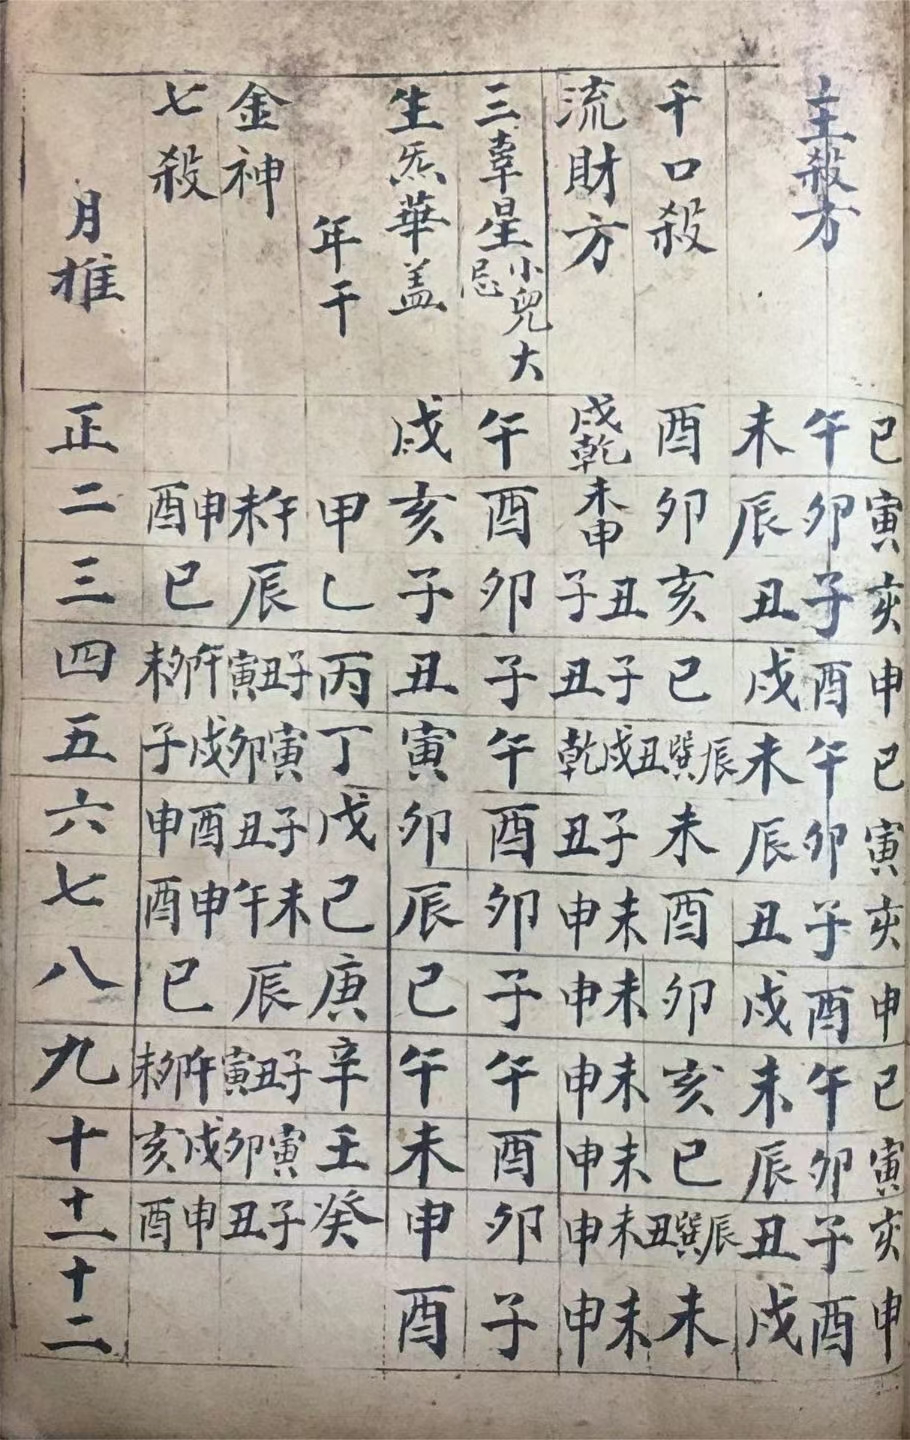 主殺方
巳寅亥申巳寅亥申巳寅亥申
午卯子酉午卯子酉午卯子酉
未辰丑戌未辰丑戌未辰丑戌
千口殺 酉 卯 亥 巳 辰巽丑 未 酉 卯 亥 巳 辰巽丑 未
流財方 戌乾 未申 丑子 子丑 戌乾 子丑 未申 未申 未申 未申 未申 未申
三辜星 小兒大忌 午 酉 卯 子 午 酉 卯 子 午 酉 卯 子
生炁華盖 戌 亥 子 丑 寅 卯 辰 巳 午 未 申 酉
年干 甲 乙 丙 丁 戊 己 庚 辛 壬 癸
金神 午未 辰 子丑寅 寅卯 子丑 未午 辰 子丑寅 寅卯 子丑
七殺 申酉 巳 午卯未 戌子 酉申 申酉 巳 午卯未 戌亥 申酉
月推 正 二 三 四 五 六 七 八 九 十 十一 十二